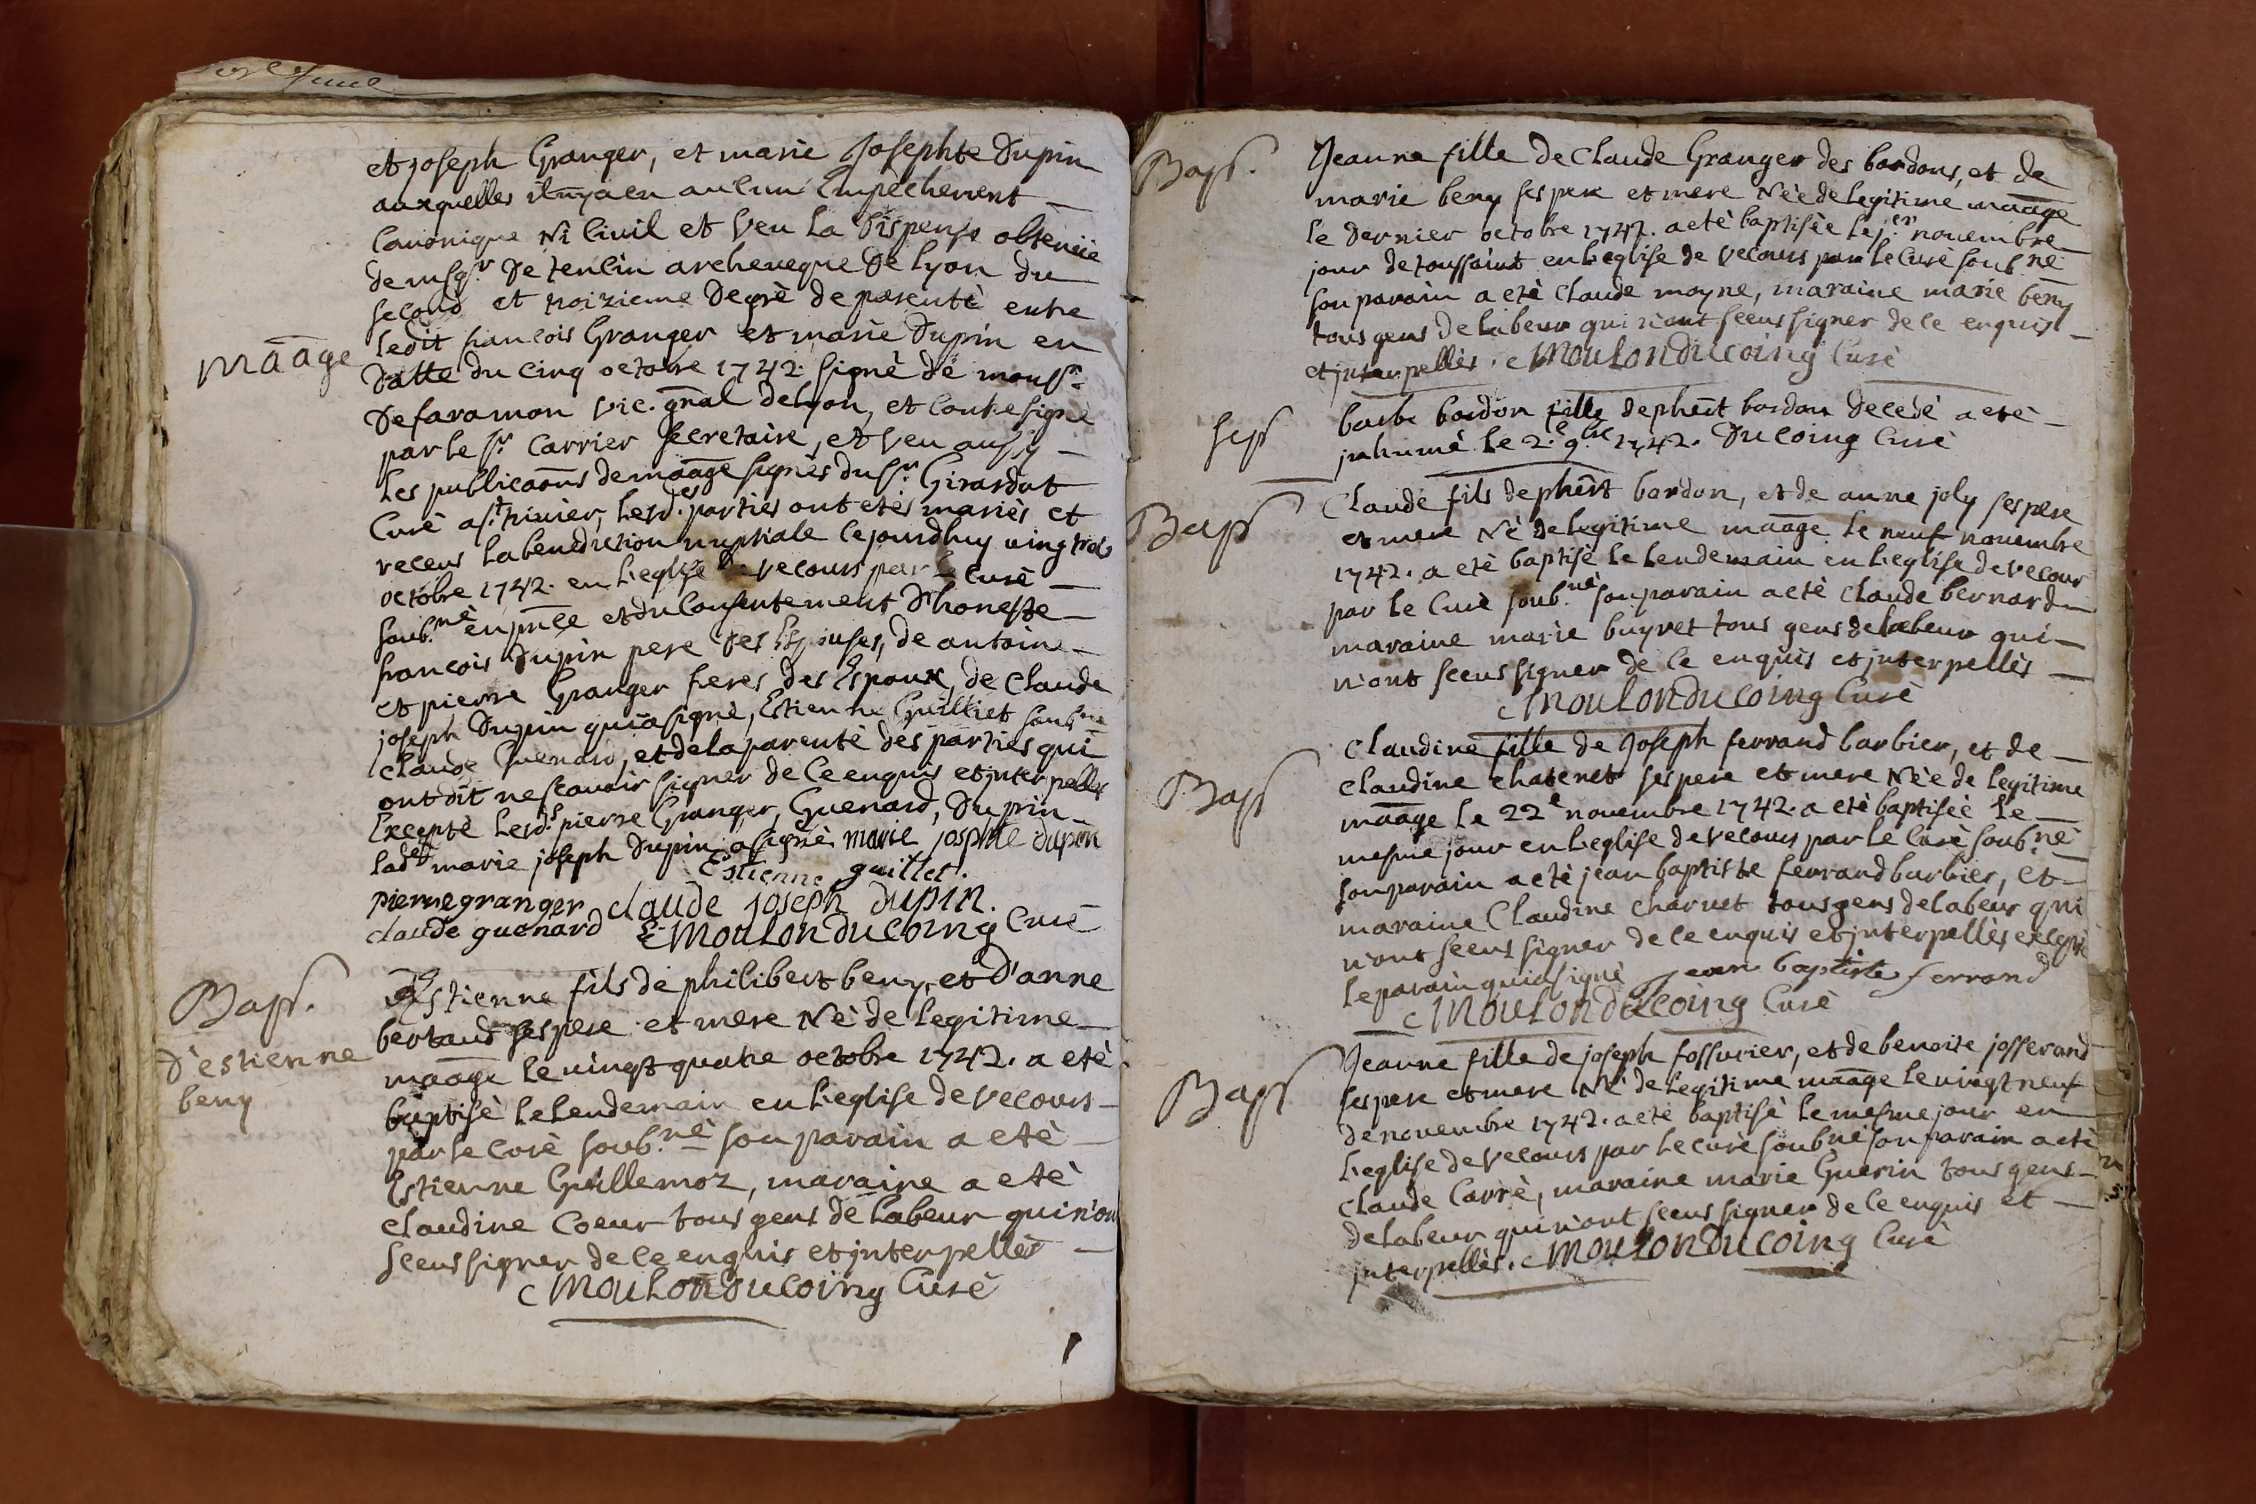 et joseph Granger, et marie Josephte Dupin
auxquelles il nya eu aucun Empechement
Canonique Ni Civil et Veu La Dispense obtenüe
de msgr. De tencin archeveque De Lyon du
second et troizieme Degrè de parentè entre
ledit francois Granger et marie Dupin en
maage
Datte du cinq octobre 1742. signè de monsr.
De faramon vic. gnal de lyon, et contresignè
par le sr. Carrier secretaire, et veu aussy
Les publicaons de maage signès du sr. Girardot
Curè a st. trivier, Lesd.es parties ont etès mariès et
receus la benediction nuptiale cejourdhuy vingtrois
octobre 1742. en L'eglise De vecours par le Curè
soub.nè en pnce et du Consentement D'honeste
francois Dupin pere des Espouses, de antoine
et pierre Granger freres des Espoux, de Claude
joseph Dupin qui a signè, Estienne Guilliet soub.nè
Claude Guenard, et de la parentè des parties qui
ont dit ne scavoir signer de ce enquis et jnterpellès
Exceptè Lesd.s pierre Granger, Guenard, Dupin
Lad.e marie joseph Dupin a signè. marie josphte dupin
Estienne guillet.
pierre granger claude joseph dupin.
claude guenard Moulon Ducoing Curè
Bapt.
D'estienne
beny
Estienne fils de philibert beny, et D'anne
bertaud ses pere et mere Nè de legitime
maage le vingt quatre octobre 1742. a etè
baptisè le lendemain en L'eglise de vecours
par le Curè soub.nè son parain a etè
Estienne Guillemoz, maraine a etè
Claudine Coeur tous gens de Labeur qui n'ont
sceus signer de ce enquis et jnterpellès
Moulon Ducoing Curè
Bapt.
Jeanne fille de Claude Granger des bordons, et de
marie beny ses pere et mere Nèe de legitime maage
le dernier octobre 1742. a etè baptisèe le j.er novembre
jour de toussaint en L'eglise de vecours par le Curè soub.nè
son parain a etè Claude moyne, maraine marie beny
tous gens de labeur qui n'ont sceus signer de ce enquis
et jnterpellès. Moulon Ducoing Curè
sept
barbe bordon fille de phért bordon decedè a etè
jnhumè le 2.e 9bre 1742. Ducoing Curè
Bapt
Claude fils de phért bordon, et de anne joly ses pere
et mere Nè de legitime maage le neuf novembre
1742. a etè baptisè le lendemain en L'eglise de vecours
par le Curè soub.nè son parain a etè Claude bernard
maraine marie buyret tous gens de labeur qui
n'ont sceus signer de ce enquis et jnterpellès
Moulon Ducoing Curè
Bapt
Claudine fille de Joseph ferrand barbier, et de
Claudine chatenet ses pere et mere Nèe de legitime
maage le 22e novembre 1742. a etè baptisèe le
mesme jour en L'eglise de vecours par le Curè soub.nè
son parain a etè jean baptiste ferrand barbier, et
maraine Claudine charvet tous gens de labeur qui
n'ont sceus signer de ce enquis et jnterpellès exceptè
le parain qui a signè Jean baptiste ferrand
Moulon Ducoing Curè
Bapt
Jeanne fille de joseph fossurier, et de benoite josserand
ses pere et mere Nè de legitime maage le vingt neuf
de novembre 1742. a etè baptisè le mesme jour en
L'eglise de vecours par le curè soub.nè son parain a etè
Claude Carrè, maraine marie Guerin tous gens
de labeur qui n'ont sceus signer de ce enquis et
jnterpellès. Moulon Ducoing Curè